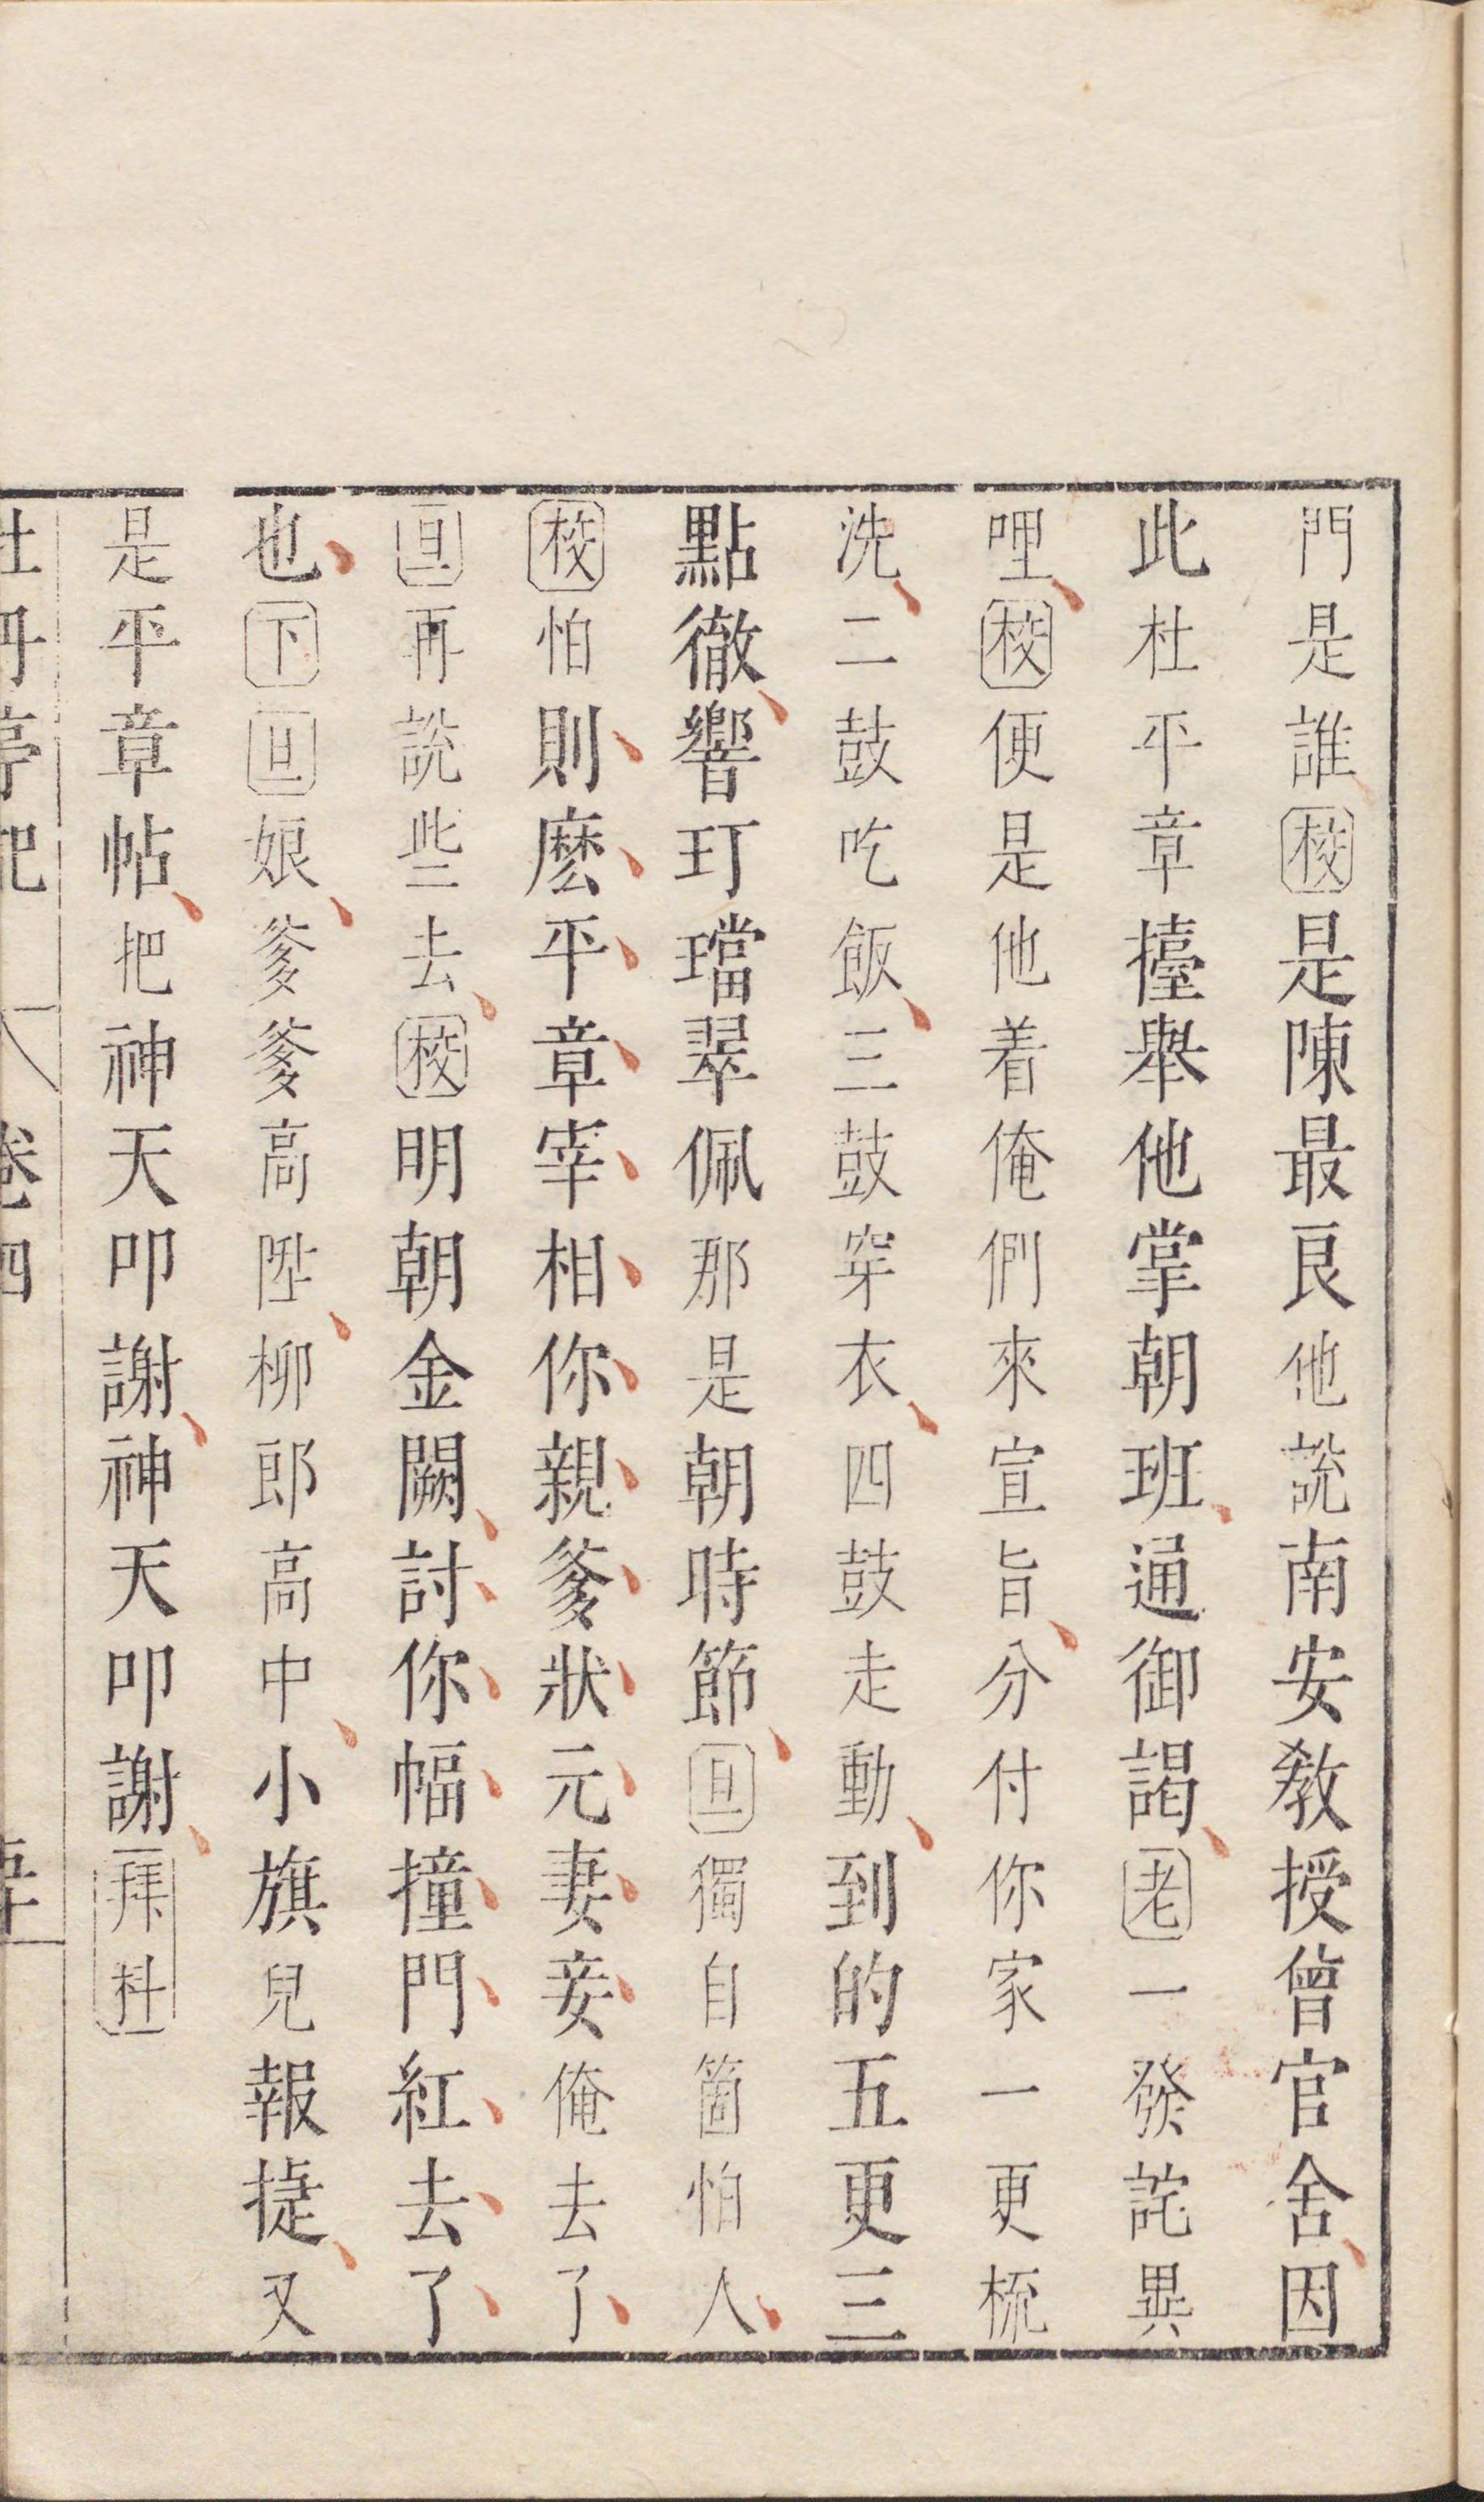 門是誰校是陳最良他説南安教授曾官舍因
此杜平章擡舉他掌朝班通御謁老一發詫異
哩校便是他着俺們來宣旨分付你家一更梳
洗二鼓吃飯三鼓穿衣四鼓走動到的五更三
點徹響玎璫翠佩那是朝時節旦獨自箇怕人
校怕則麽平章宰相你親爹狀元妻妾俺去了
旦再説些去校明朝金闕討你幅撞門紅去了
也下旦娘爹爹高陞柳郎高中小旗兒報捷又
是平章帖把神天叩謝神天叩謝拜科
牡丹亭記 卷四